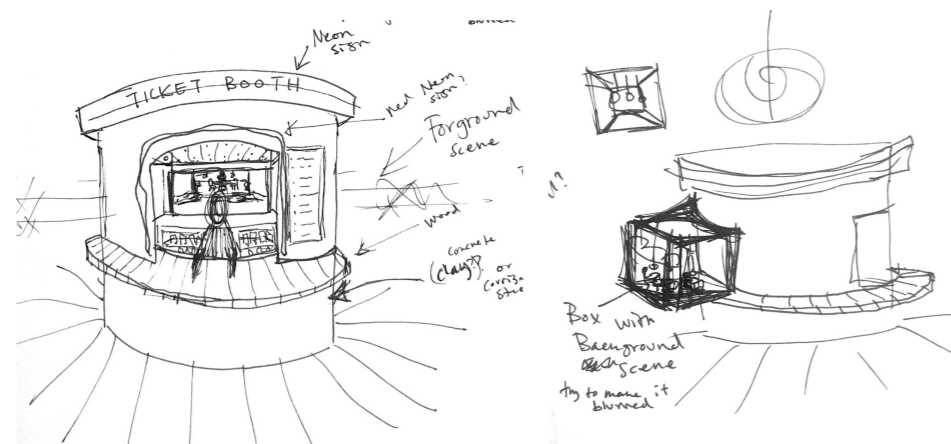 Neon
sign
TICKET BOOTH
red Neon
sign?
Forground
scene
wood
concrete
(clay?)? or
blurred
Box with
Background
scene
try to make it
blurred